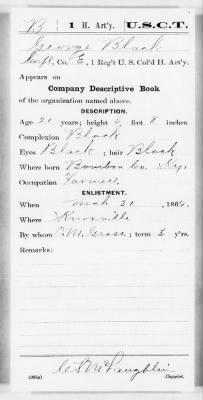 B | 1 H. Art'y. | U.S.C.T.
George Black
Corpl, Co. E, 1 Reg't U. S. Col'd H. Art'y.
Appears on
Company Descriptive Book
of the organization named above.
DESCRIPTION.
Age 21 years; height 5 feet 8 inches.
Complexion Black
Eyes Black; hair Black
Where born Bourbon Co. Ky.
Occupation Farmer
ENLISTMENT.
When Mch 21, 1864.
Where Knoxville
By whom O.M. Gross; term 3 y'rs.
Remarks:
McLaughlin
Copyist.